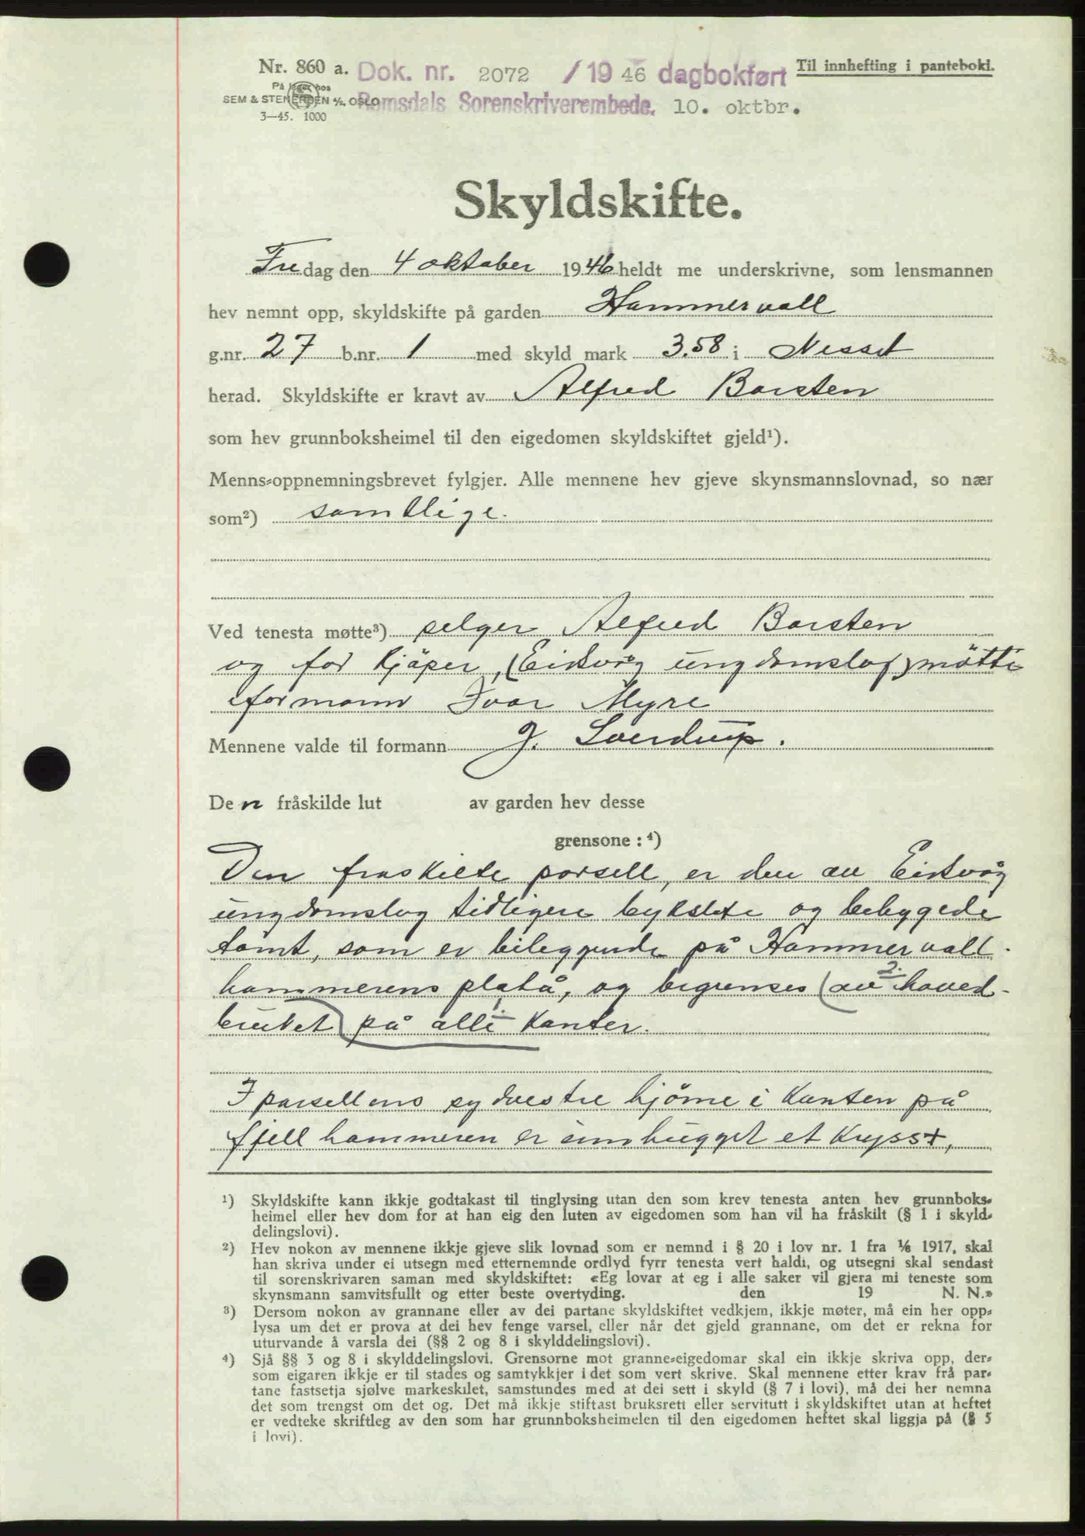 Nr. 860 a. Dok. nr. 2072 / 1946 dagbokført Til innhefting i pantebok.
På lager hos
SEM & STENERSEN A/S, OSLO Romsdals Sorenskriverembede. 10. oktbr.
3—45. 1000
Skyldskifte.
Fredag den 4 oktober 1946 heldt me underskrivne, som lensmannen
hev nemnt opp, skyldskifte på garden Hammervall
g.nr. 27 b.nr. 1 med skyld mark 3.58 i Nesset
herad. Skyldskifte er kravt av Alfred Barsten
som hev grunnboksheimel til den eigedomen skyldskiftet gjeld¹).
Menns-oppnemningsbrevet fylgjer. Alle mennene hev gjeve skynsmannslovnad, so nær
som²) samtlige.
Ved tenesta møtte³) selger Alfred Barsten
og for kjöper, (Eidsvåg ungdomslag) mötte
formann Ivar Myre
Mennene valde til formann J. Sverdrup.
Den fråskilde lut av garden hev desse
grensone : ⁴)
Den fraskilte parsell, er den av Eidsvåg
ungdomslag tidligere bykslete og bebyggede
tomt, som er beliggende på Hammervall-
hammerens platå, og begrenses (av 2. hoved-
bruket) på alle 1. kanter.
I parsellens sydvestre hjörne i kanten på
fjellhammeren er innhugget et kryss +,
¹) Skyldskifte kann ikkje godtakast til tinglysing utan den som krev tenesta anten hev grunnboks-
heimel eller hev dom for at han eig den luten av eigedomen som han vil ha fråskilt (§ 1 i skyld-
delingslovi).
²) Hev nokon av mennene ikkje gjeve slik lovnad som er nemnd i § 20 i lov nr. 1 fra 1/6 1917, skal
han skriva under ei utsegn med etternemnde ordlyd fyrr tenesta vert haldi, og utsegni skal sendast
til sorenskrivaren saman med skyldskiftet: «Eg lovar at eg i alle saker vil gjera mi teneste som
skynsmann samvitsfullt og etter beste overtyding. den 19 N. N.»
³) Dersom nokon av grannane eller av dei partane skyldskiftet vedkjem, ikkje møter, må ein her opp-
lysa um det er prova at dei hev fenge varsel, eller når det gjeld grannane, om det er rekna for
uturvande å varsla dei (§§ 2 og 8 i skylddelingslovi).
⁴) Sjå §§ 3 og 8 i skylddelingslovi. Grensorne mot granne-eigedomar skal ein ikkje skriva opp, der-
som eigaren ikkje er til stades og samtykkjer i det som vert skrive. Skal mennene etter krav frå par-
tane fastsetja sjølve markeskilet, samstundes med at dei sett i skyld (§ 7 i lovi), må dei her nemna
det som trengst om det og. Det må ikkje stiftast bruksrett eller servitutt i skyldskiftet utan at heftet
er vedteke skriftleg av den som har grunnboksheimelen til den eigedomen heftet skal liggja på (§ 5
i lovi).